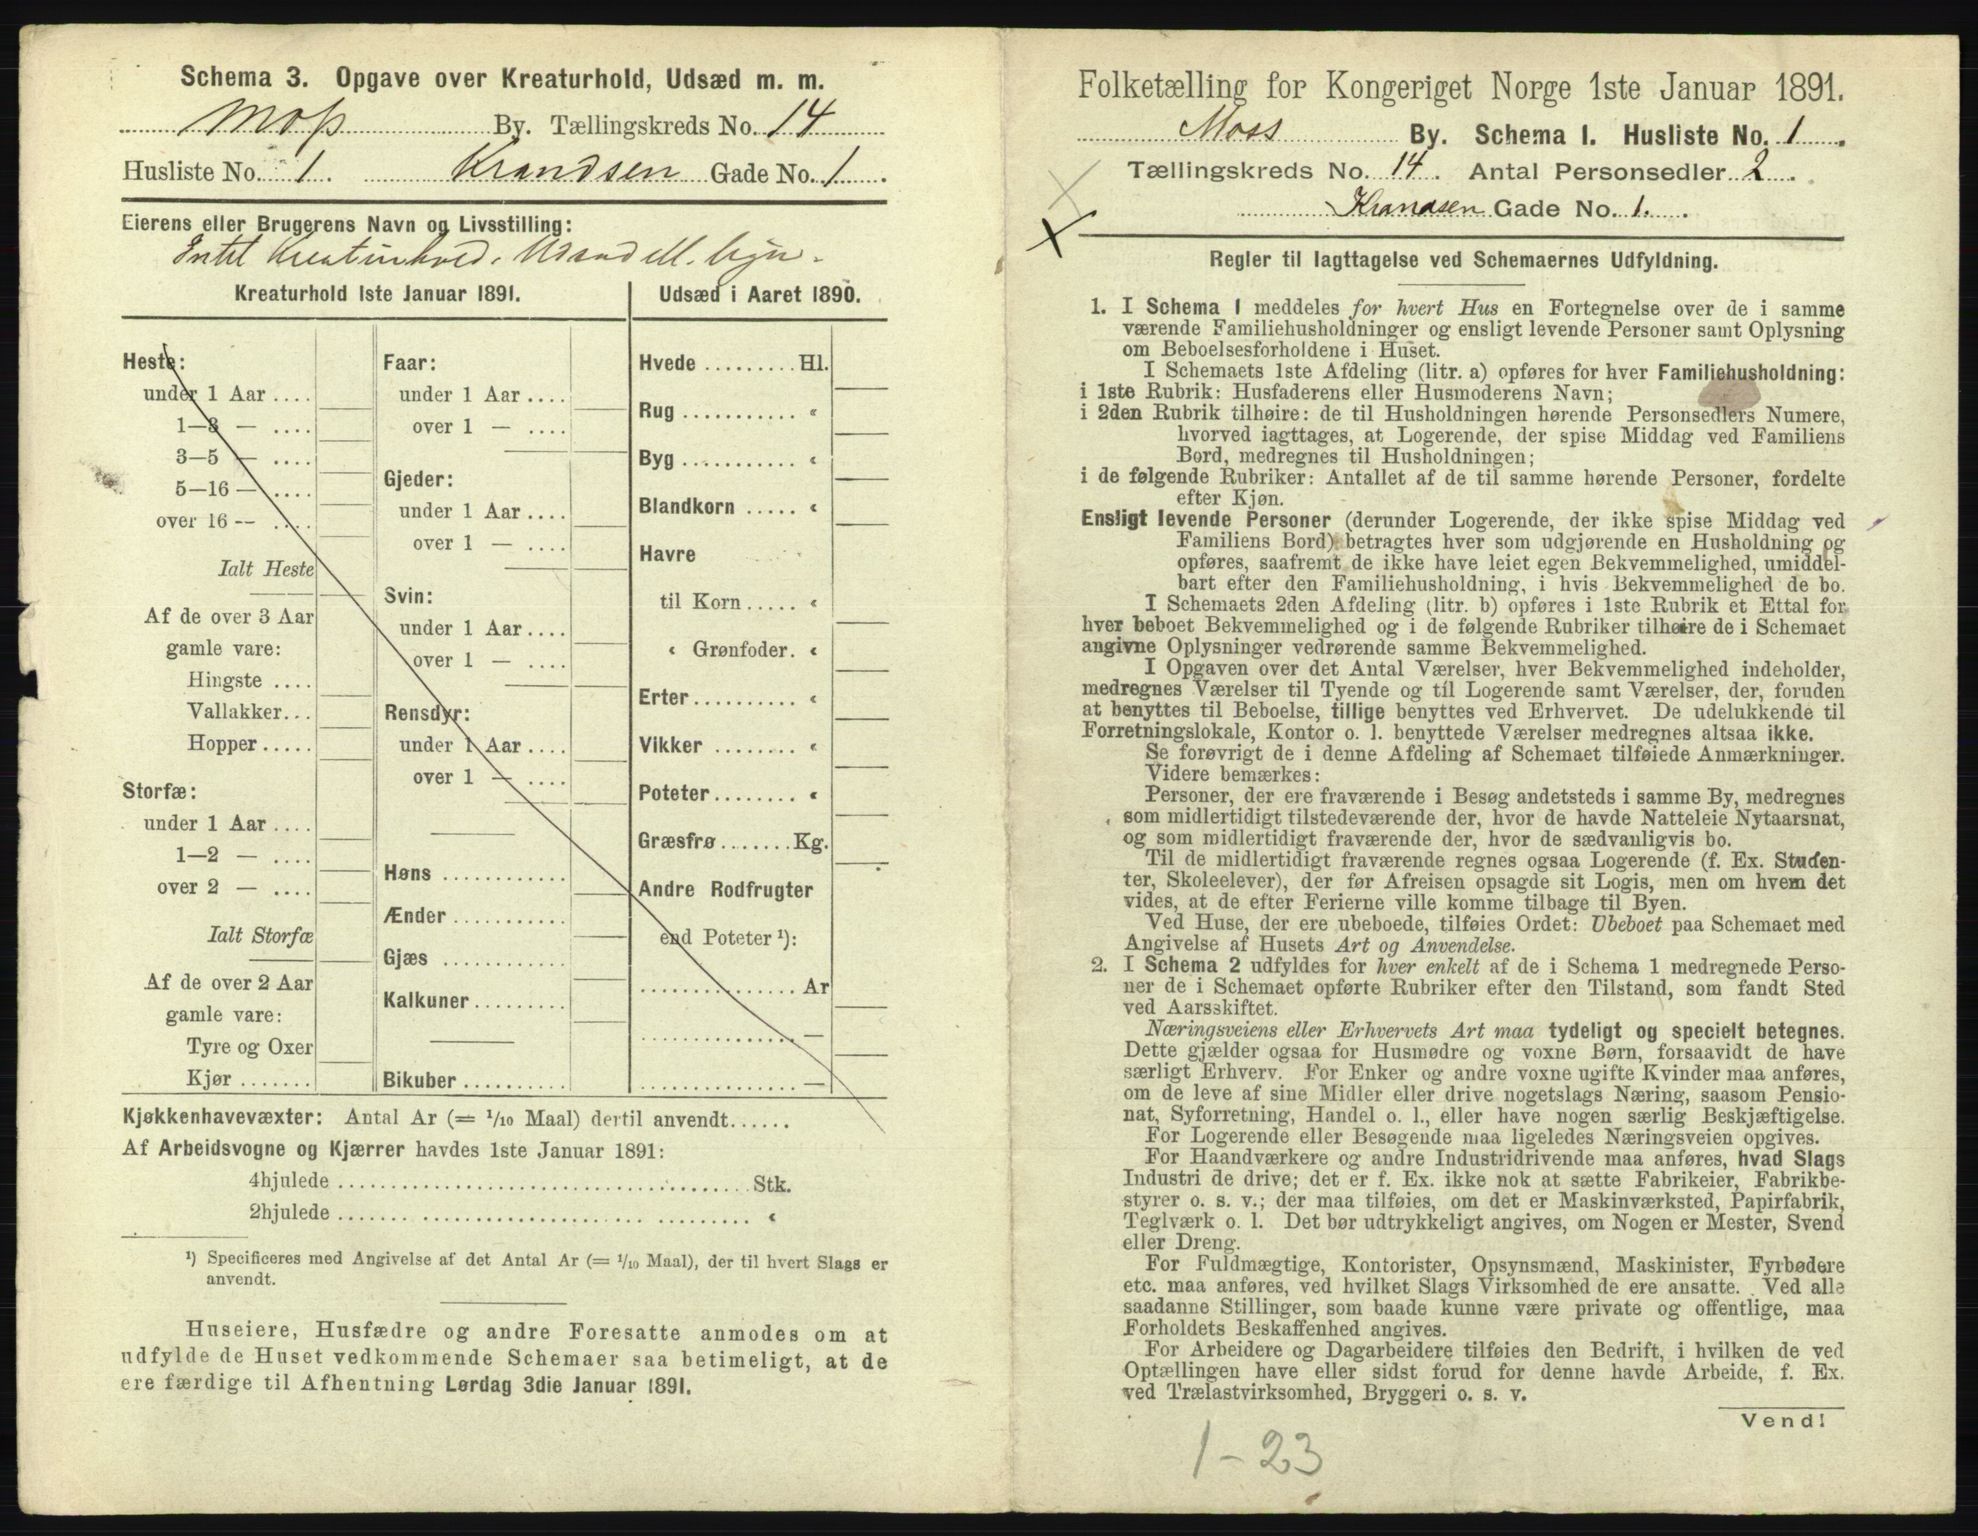 Schema 3. Opgave over Kreaturhold, Udsæd m. m.
Moss By. Tællingskreds No. 14
Husliste No. 1. Krandsen Gade No. 1.
Eierens eller Brugerens Navn og Livsstilling:
Intet Kreaturhold, Udsæd ell. lign.
Kreaturhold 1ste Januar 1891.
Heste:
under 1 Aar ....
1—3 — ....
3—5 — ....
5—16 — ....
over 16 -- ....
Ialt Heste
Af de over 3 Aar
gamle vare:
Hingste ....
Vallakker...
Hopper.....
Storfæ:
under 1 Aar ....
1—2 — ....
over 2 — ....
Ialt Storfæ
Af de over 2 Aar
gamle vare:
Tyre og Oxer
Kjør .......
Faar:
under 1 Aar ....
over 1 — ....
Gjeder:
under 1 Aar ....
over 1 — ....
Svin:
under 1 Aar ....
over 1 — ....
Rensdyr:
under 1 Aar ....
over 1 — ....
Høns ............
Ænder ...........
Gjæs ............
Kalkuner.........
Bikuber ..........
Udsæd i Aaret 1890.
Hvede ......... Hl.
Rug ........... «
Byg ........... «
Blandkorn ..... «
Havre
til Korn ..... «
« Grønfoder. «
Erter.......... «
Vikker ........ «
Poteter ........ «
Græsfrø ....... Kg.
Andre Rodfrugter
end Poteter ¹):
............... Ar
............... —
............... —
Kjøkkenhavevæxter: Antal Ar (= 1/10 Maal) dertil anvendt......
Af Arbeidsvogne og Kjærrer havdes 1ste Januar 1891:
4hjulede ........................................ Stk.
2hjulede ........................................ «
¹) Specificeres med Angivelse af det Antal Ar (= 1/10 Maal), der til hvert Slags er
anvendt.
Huseiere, Husfædre og andre Foresatte anmodes om at
udfylde de Huset vedkommende Schemaer saa betimeligt, at de
ere færdige til Afhentning Lørdag 3die Januar 1891.
Folketælling for Kongeriget Norge 1ste Januar 1891.
Moss By. Schema 1. Husliste No. 1.
Tællingskreds No. 14. Antal Personsedler 2.
Krandsen Gade No. 1.
Regler til Iagttagelse ved Schemaernes Udfyldning.
1. I Schema 1 meddeles for hvert Hus en Fortegnelse over de i samme
værende Familiehusholdninger og ensligt levende Personer samt Oplysning
om Beboelsesforholdene i Huset.
I Schemaets 1ste Afdeling (litr. a) opføres for hver Familiehusholdning:
i 1ste Rubrik: Husfaderens eller Husmoderens Navn;
i 2den Rubrik tilhøire: de til Husholdningen hørende Personsedlers Numere,
hvorved iagttages, at Logerende, der spise Middag ved Familiens
Bord, medregnes til Husholdningen;
i de følgende Rubriker: Antallet af de til samme hørende Personer, fordelte
efter Kjøn.
Ensligt levende Personer (derunder Logerende, der ikke spise Middag ved
Familiens Bord) betragtes hver som udgjørende en Husholdning og
opføres, saafremt de ikke have leiet egen Bekvemmelighed, umiddel-
bart efter den Familiehusholdning, i hvis Bekvemmelighed de bo.
I Schemaets 2den Afdeling (litr. b) opføres i 1ste Rubrik et Ettal for
hver beboet Bekvemmelighed og i de følgende Rubriker tilhøire de i Schemaet
angivne Oplysninger vedrørende samme Bekvemmelighed.
I Opgaven over det Antal Værelser, hver Bekvemmelighed indeholder,
medregnes Værelser til Tyende og til Logerende samt Værelser, der, foruden
at benyttes til Beboelse, tillige benyttes ved Erhvervet. De udelukkende til
Forretningslokale, Kontor o. l. benyttede Værelser medregnes altsaa ikke.
Se forøvrigt de i denne Afdeling af Schemaet tilføiede Anmærkninger.
Videre bemærkes:
Personer, der ere fraværende i Besøg andetsteds i samme By, medregnes
som midlertidigt tilstedeværende der, hvor de havde Natteleie Nytaarsnat,
og som midlertidigt fraværende der, hvor de sædvanligvis bo.
Til de midlertidigt fraværende regnes ogsaa Logerende (f. Ex. Studen-
ter, Skoleelever), der før Afreisen opsagde sit Logis, men om hvem det
vides, at de efter Ferierne ville komme tilbage til Byen.
Ved Huse, der ere ubeboede, tilføies Ordet: Ubeboet paa Schemaet med
Angivelse af Husets Art og Anvendelse.
2. I Schema 2 udfyldes for hver enkelt af de i Schema 1 medregnede Perso-
ner de i Schemaet opførte Rubriker efter den Tilstand, som fandt Sted
ved Aarsskiftet.
Næringsveiens eller Erhvervets Art maa tydeligt og specielt betegnes.
Dette gjælder ogsaa for Husmødre og voxne Børn, forsaavidt de have
særligt Erhverv. For Enker og andre voxne ugifte Kvinder maa anføres,
om de leve af sine Midler eller drive nogetslags Næring, saasom Pensio-
nat, Syforretning, Handel o. l., eller have nogen særlig Beskjæftigelse.
For Logerende eller Besøgende maa ligeledes Næringsveien opgives.
For Haandværkere og andre Industridrivende maa anføres, hvad Slags
Industri de drive; det er f. Ex. ikke nok at sætte Fabrikeier, Fabrikbe-
styrer o. s. v.; der maa tilføies, om det er Maskinværksted, Papirfabrik,
Teglværk o. l. Det bør udtrykkeligt angives, om Nogen er Mester, Svend
eller Dreng.
For Fuldmægtige, Kontorister, Opsynsmænd, Maskinister, Fyrbødere
etc. maa anføres, ved hvilket Slags Virksomhed de ere ansatte. Ved alle
saadanne Stillinger, som baade kunne være private og offentlige, maa
Forholdets Beskaffenhed angives.
For Arbeidere og Dagarbeidere tilføies den Bedrift, i hvilken de ved
Optællingen have eller sidst forud for denne havde Arbeide, f. Ex.
ved Trælastvirksomhed, Bryggeri o. s. v.
Vend!
1-23